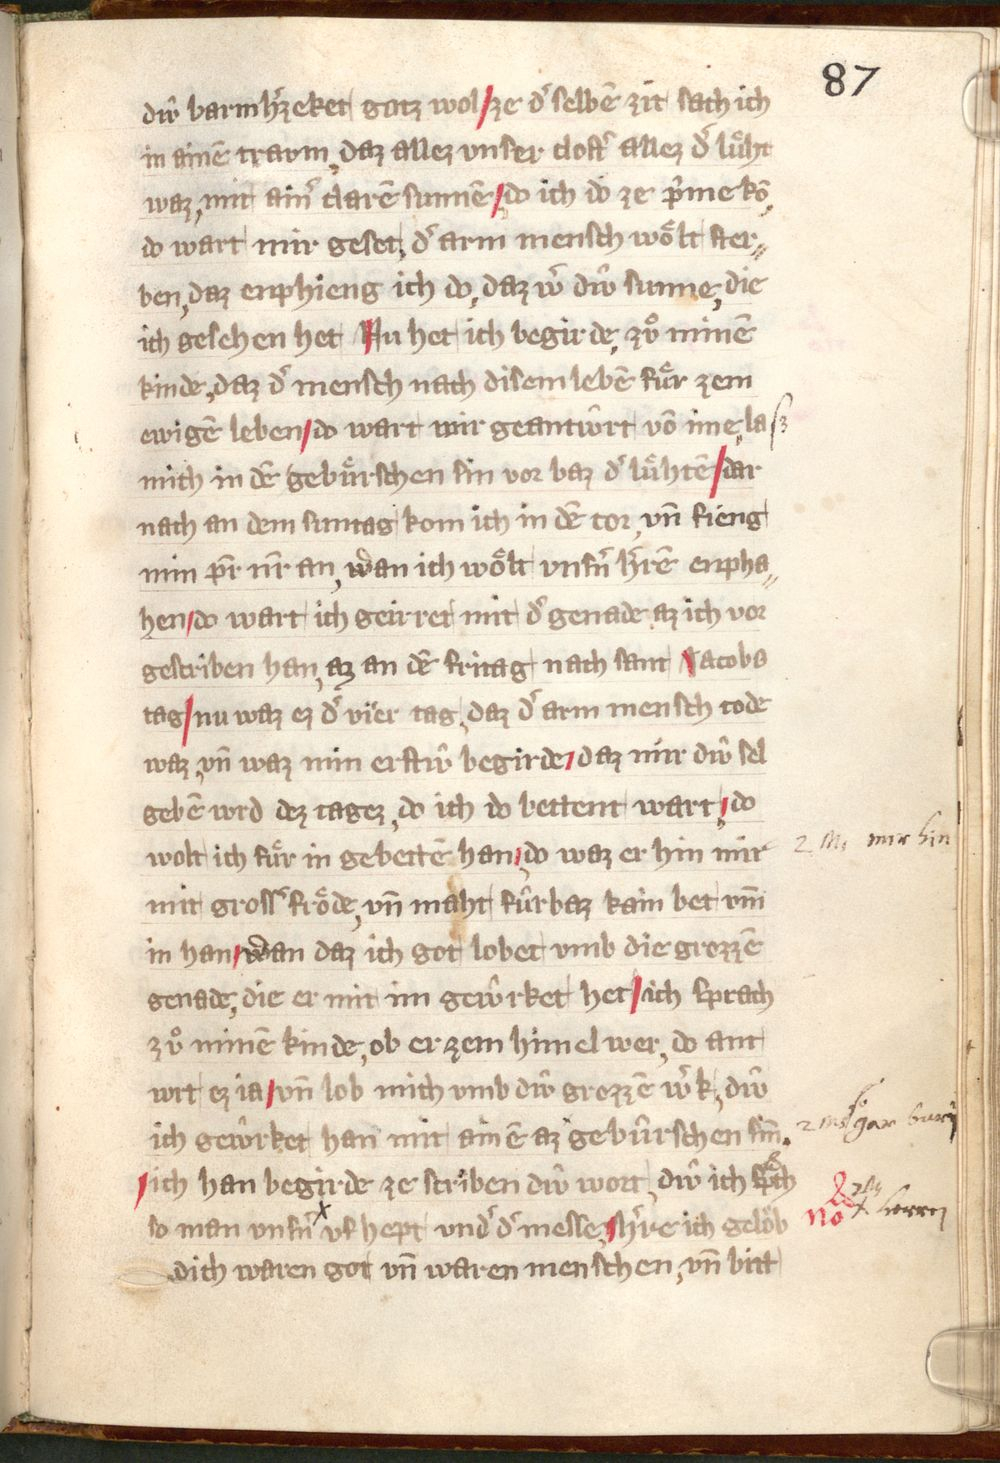 87
diŵ barmh'zeket gotz wol / ze d' selbē zit sach ich
in ainē traum, daz allez vnser clost' allez d' lüht
waz, mit ain' clarē sunnē / do ich do ze p'me kō,
do wart mir geset, d' arm mensch wölt ster„
ben, daz enphieng ich do, daz w' diŵ sunne, die
ich gesehen het Nu het ich begirde, zů minē
kinde, daz d' mensch nach disem lebē für zem
ewigē leben / do wart mir geantŵrt vō ime, laſz
mich in dē gebürschen sin vor baz d' lühtē / dar
nach an dem suntag kom ich in dē cor, vn̄ fieng
min pr̄ nr̄ an, wan ich wölt vnſn' h'rē enpha„
hen / do wart ich geirret mit d' genade az ich vor
gescriben han, az an dē fritag nach sant Jacobs
tag / nu waz ez d' vier tag, daz d' arm mensch tode
waz, vn̄ waz min erstiŵ begirde / daz mir diŵ sel
gebē wrd dez tagez, do ich do bettent wart / do
wolt ich für in gebettē han / do waz er hin mir
2 M. mir hin
mit gross' fröde, vn̄ maht fürbaz kain bet vm̄
in han / wan daz ich got lobet vmb die grozzē
genade, die er mit im geŵrket het / ich sprach
zů minē kinde, ob er zem himel wer, do ant
wrt ez ia / vn̄ lob mich vmb diŵ grozzē w'k, diŵ
ich geŵrket han mit ainē az gebürschen sin̄.
/ ich han begirde ze scriben diŵ wort, diŵ ich sp'ch
so man vnſn' x vf hept vnd' d' messe / h're ich gelöb
No x herren
dich waren got vn̄ waren menschen, vn̄ bitt